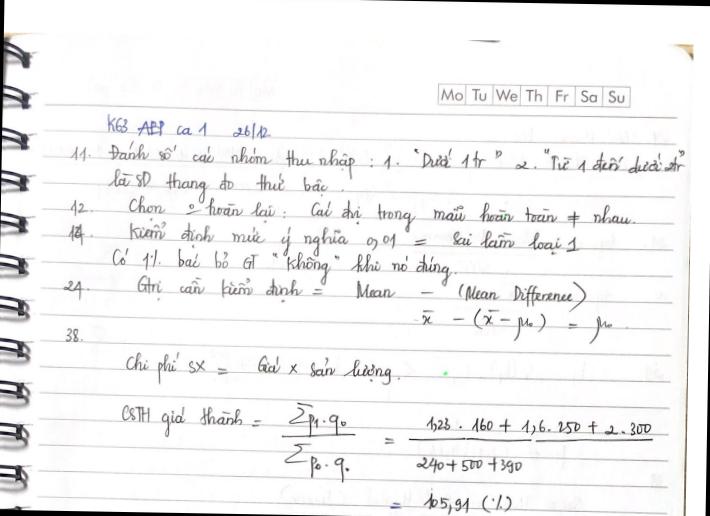 Mo Tu We Th Fr Sa Su
K63 AEP ca 1 26/12
11. Đánh số các nhóm thu nhập : 1. "Dưới 1tr" 2. "Từ 1 đến dưới 2tr"
là SD thang đo thứ bậc.
12. Chọn 0 hoàn lại : Các đvị trong mẫu hoàn toàn ≠ nhau.
Kiểm định mức ý nghĩa 0,01 = Sai lầm loại 1
Có 1% bác bỏ GT "không" khi nó đúng.
24. Gtrị cần kiểm định = Mean - (Mean Difference)
x̄ - (x̄ - μ₀) = μ₀
38.
Chi phí SX = Giá x Sản lượng.
CSTH giá thành = Σp₁.q₀ / Σp₀.q₀ = 1,23 . 160 + 1,6 . 250 + 2 . 300 / 240 + 500 + 390
= 105,91 (%)